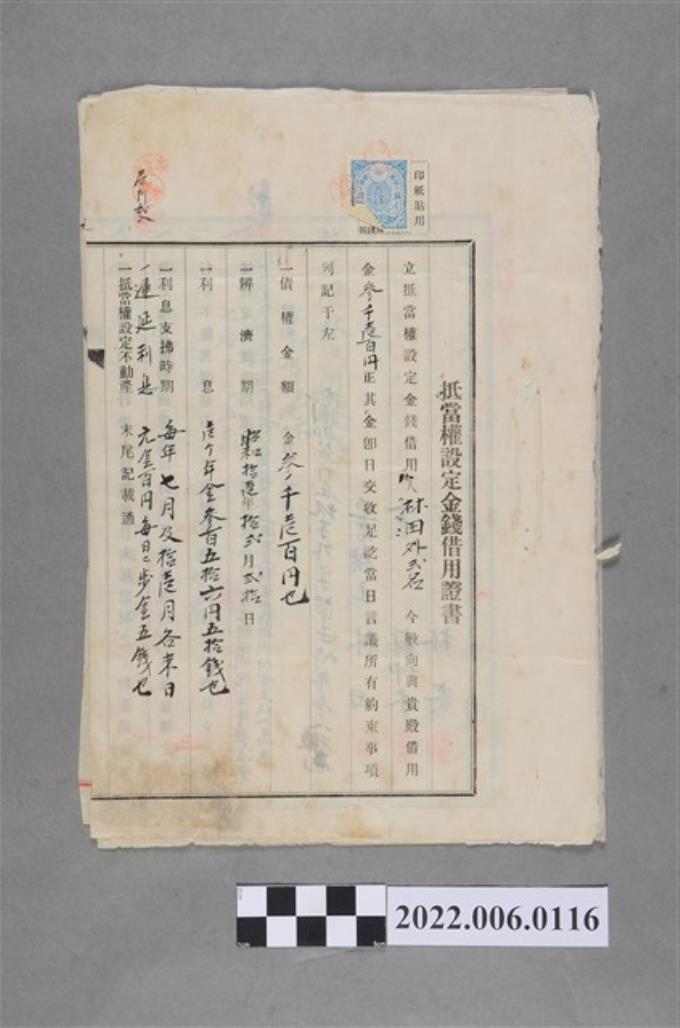 印紙貼用
抵當權設定金錢借用證書
立抵當權設定金錢借用人林田外弍名 今般向與貴殿借用
金參千壱百円正其金卽日交收足訖當日言議所有約束事項
列記于左
一債權金額 金參千壱百円也
一辨濟期 昭和拾壱年拾弍月弍拾日
一利息 壱ケ年金參百五拾六円五拾錢也
一利息支拂時期 每年七月及拾壱月各末日
一遲延利息 元金百円每日步金五錢也
一抵當權設定不動產 末尾記載通
2022.006.0116